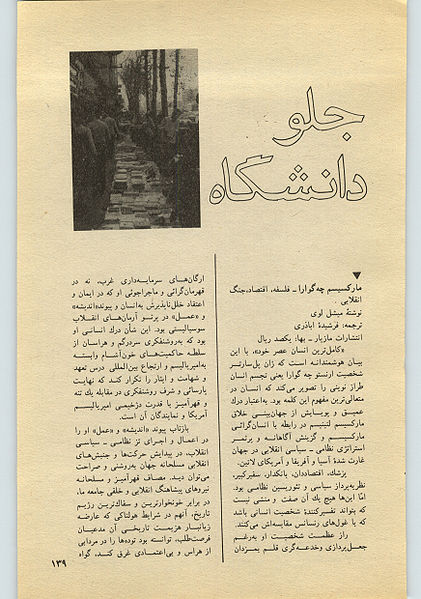 جلو
دانشگاه
▼
مارکسیسم چه‌گوارا ـ فلسفه، اقتصاد، جنگ
انقلابی .
نوشتهٔ میشل لوی
ترجمه: فرشیدهٔ اباذری
انتشارات مازیار ـ بها: یکصد ریال
«کامل‌ترین انسان عصر خود»، با این
بیان هوشمندانه است که ژان پل‌سارتر
شخصیت ارنستو چه گوارا یعنی تجسم انسان
طراز نوینی را تصویر می‌کند که انسان در
متعالی‌ترین مفهوم این کلمه بود. به‌اعتبار درك
عمیق و پویایش از جهان‌بینی خلاق
مارکسیسم لنینیسم در رابطه با انسان‌گرائی
مارکسیسم و گزینش آگاهانه و پرثمر
استراتژی نظامی ـ سیاسی انقلابی در جهان
غارت شدهٔ آسیا و آفریقا و آمریکای لاتین.
پزشك، اقتصاددان، بانکدار، سفیرکبیر،
نظریه‌پرداز سیاسی و تئوریسین نظامی بود.
امّا این‌ها هیچ یك آن صفت و منشی نیست
که بتواند تفسیرکنندهٔ شخصیت انسانی باشد
که با غول‌های رنسانس مقایسه‌اش می‌کنند.
راز عظمت شخصیت او به‌رغم
جعل‌پردازی وخدعه‌گری قلم بمزدان
ارگان‌های سرمایه‌داری غرب، نه در
قهرمان‌گرائی و ماجراجوئی او که در ایمان و
اعتقاد خلل‌ناپذیرش به‌انسان و پیوند«اندیشه»
و «عمل» در پرتو آرمان‌های انقلاب
سوسیالیستی بود. این شأن درك انسانی او
بود که به‌روشنفکری سردرگم و هراسان از
سلطه حاکمیت‌های خون‌آشام وابسته
به‌امپریالیسم و ارتجاع بین‌المللی درس تعهد
و شهامت و ایثار را تکرار کند که نهایت
پارسائی و شرف روشنفکری در مقابله یك تنه
و قهرآمیز با قدرت دژخیمی امپریالیسم
آمریکا و نمایندگان آن است.
بازتاب پیوند «اندیشه» و «عمل» او را
در اعمال و اجرای تز نظامی ـ سیاسی
انقلاب، در پیدایش حرکت‌ها و جنبش‌های
انقلابی مسلحانه جهان به‌روشنی و صراحت
می‌توان دید. مصاف قهرآمیز و مسلحانه
نیروهای پیشاهنگ انقلابی و خلقی جامعه ما،
در برابر خونخوارترین و سفاك‌ترین رژیم
تاریخ، آنهم در شرایط هولناکی که عارضه
زیانبار هزیمت تاریخی آن مدعیان
فرصت‌طلب، توانسته بود توده‌ها را در مردابی
از هراس و بی‌اعتمادی غرق کند، گواه
۱۳۹